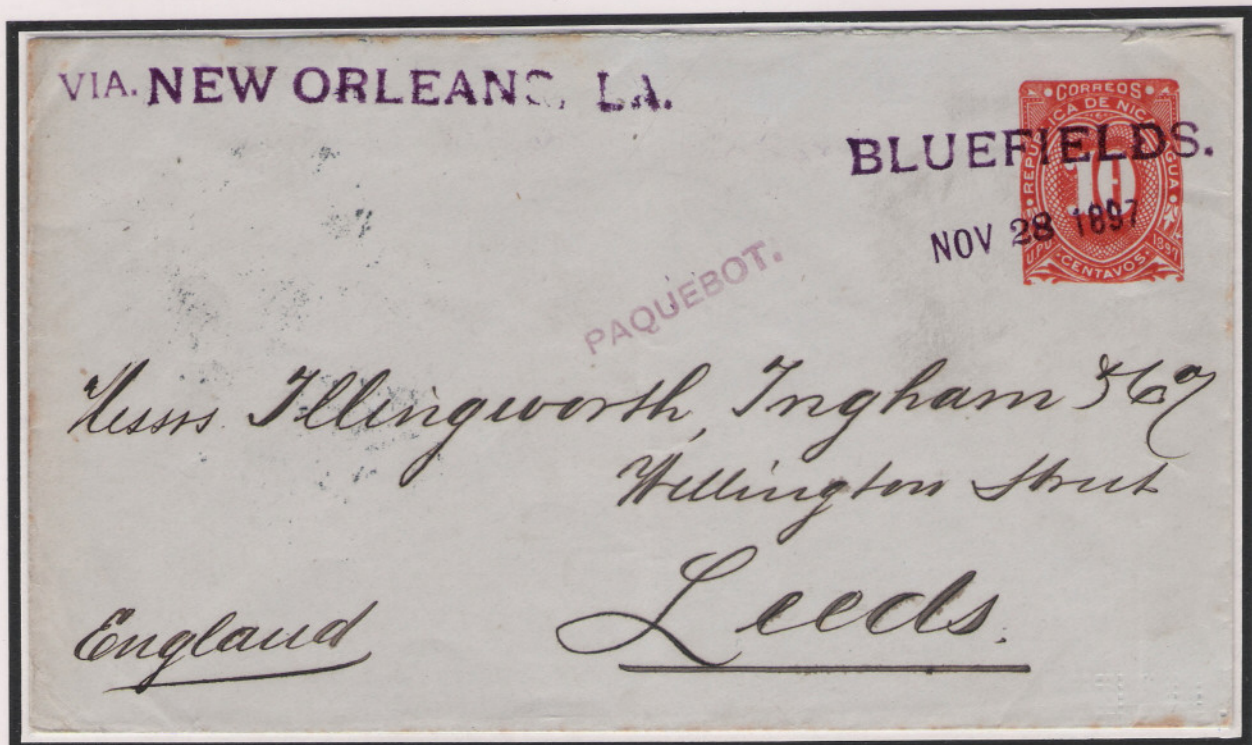 VIA. NEW ORLEANS, LA.
CORREOS
REPUBLICA DE NICARAGUA
10
U.P.U. CENTAVOS 1897
BLUEFIELDS.
NOV 28 1897
PAQUEBOT.
Messrs Illingworth, Ingham & Co
Wellington Street
Leeds.
England